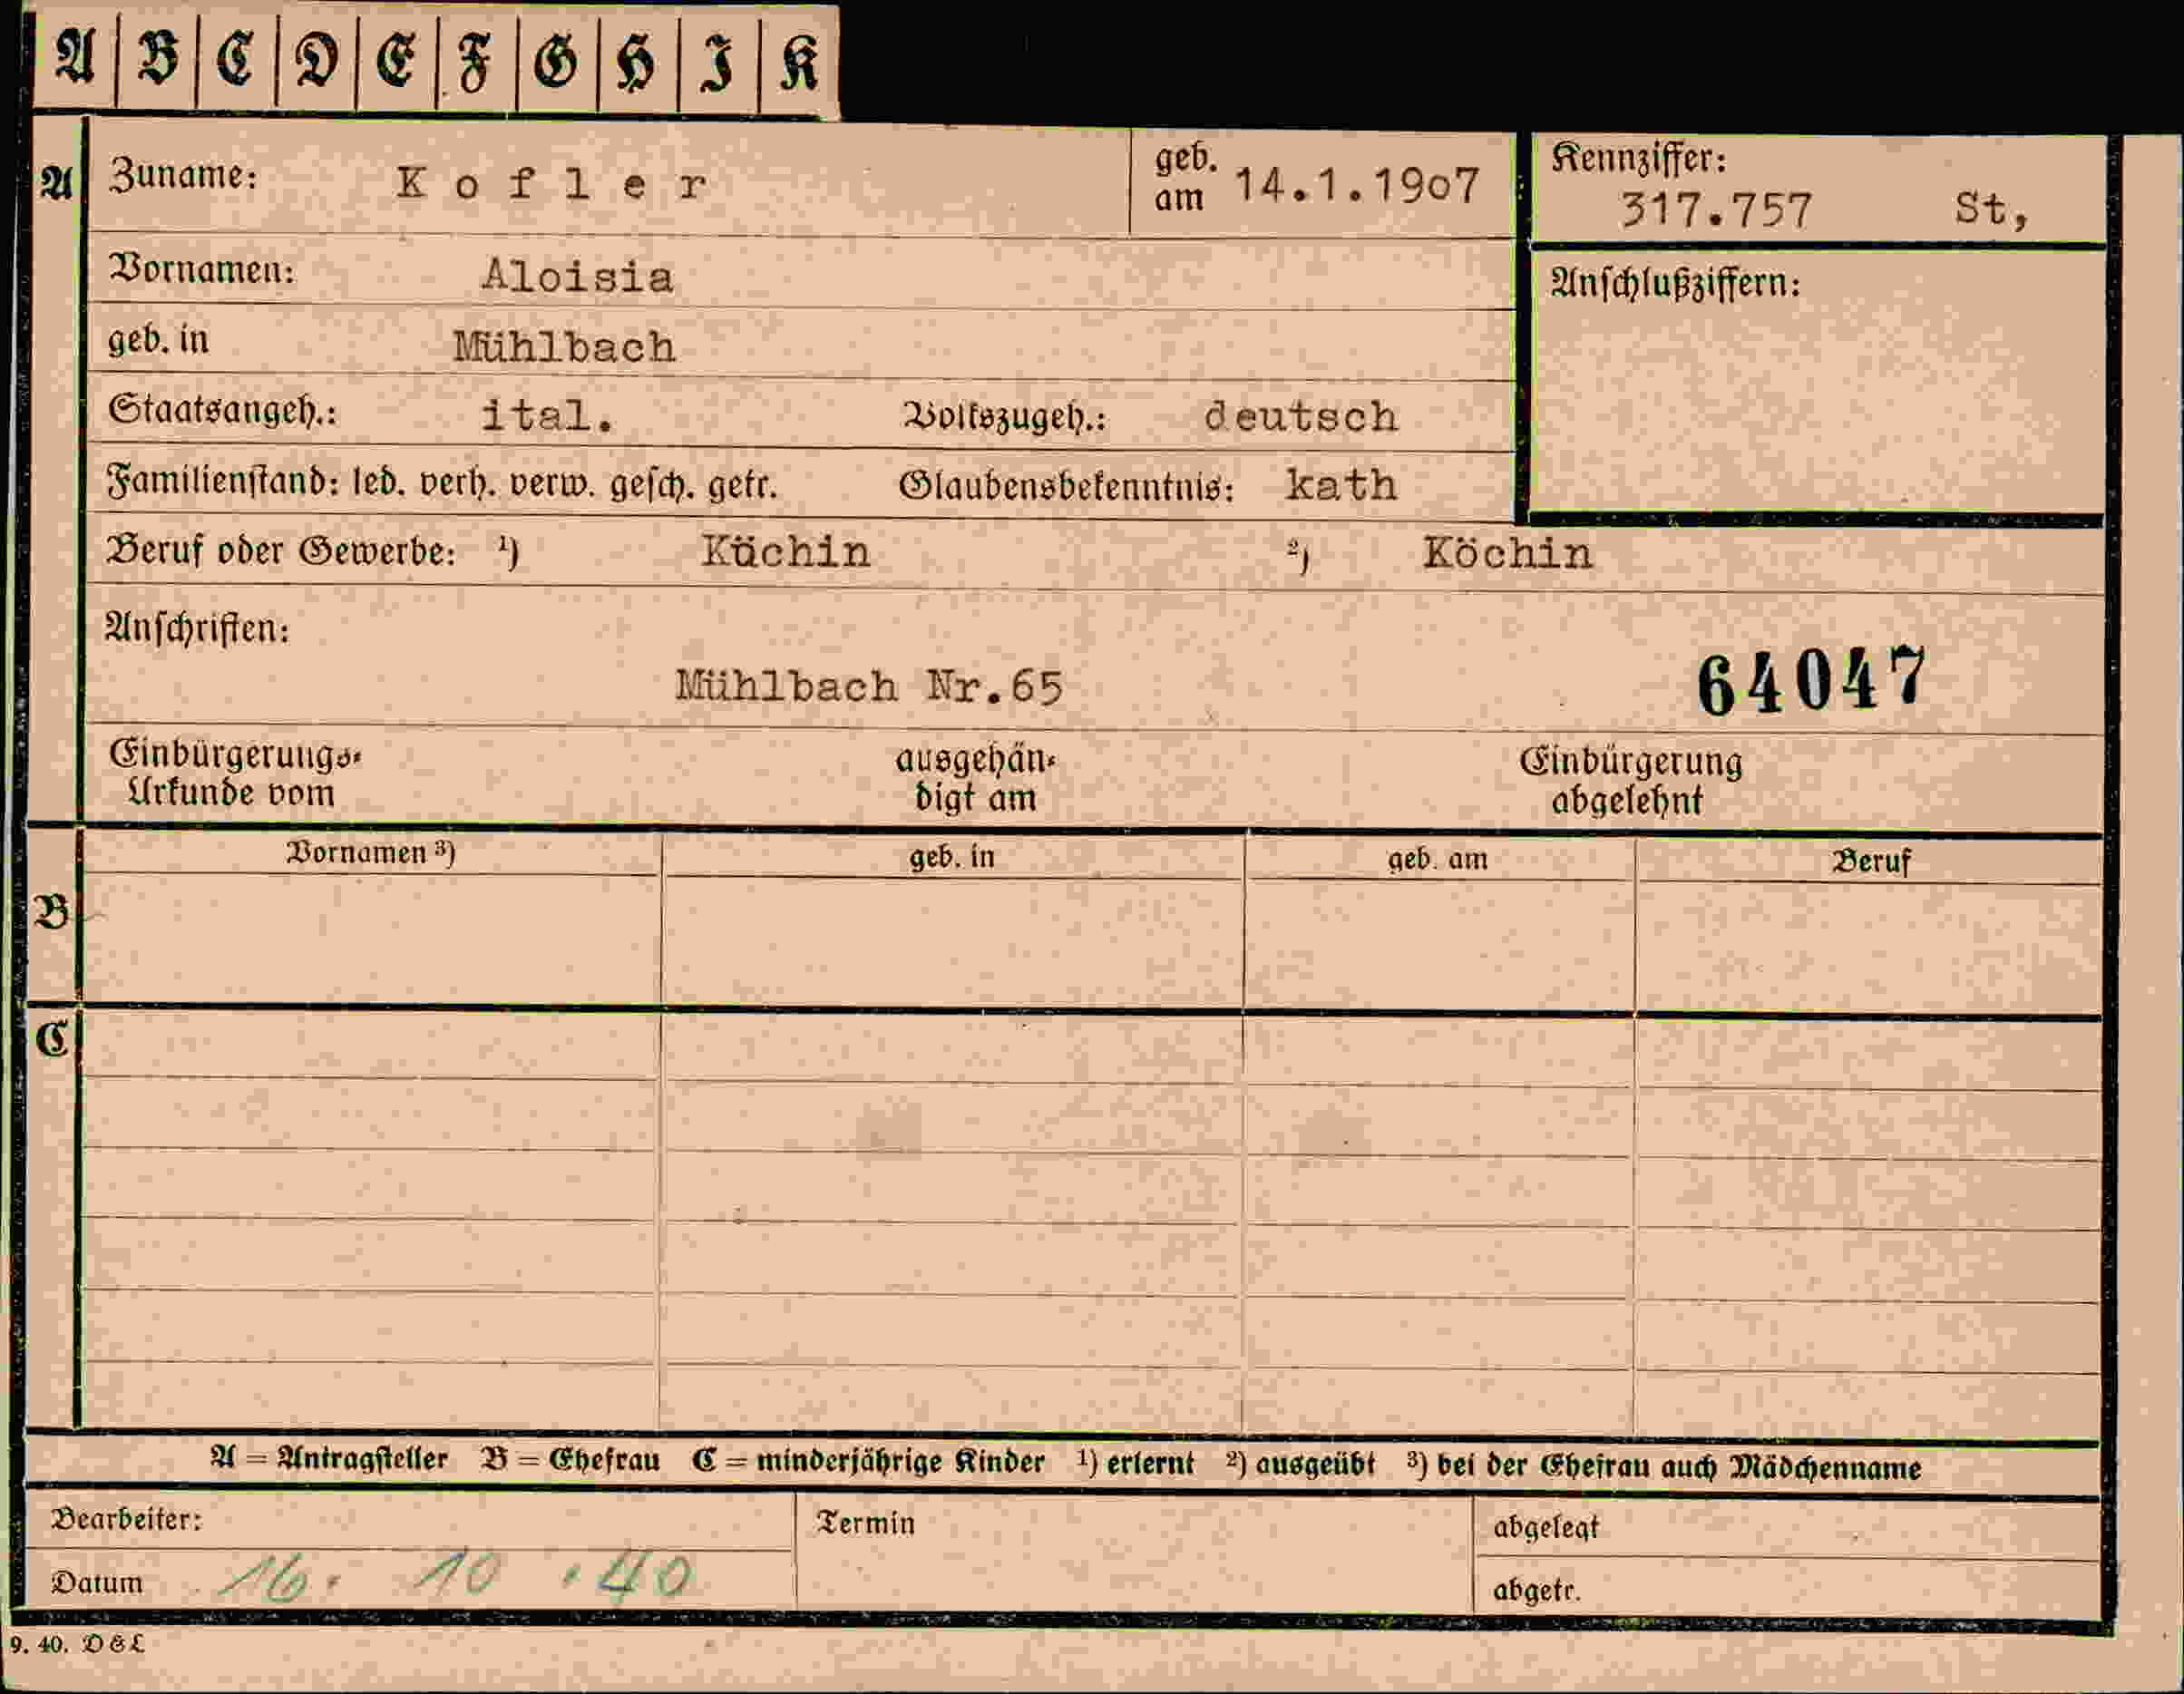 A B C D E F G H I K
A Zuname: Kofler geb. am 14.1.19o7 Kennziffer: 317.757 St,
Vornamen: Aloisia Anschlußziffern:
geb. in Mühlbach
Staatsangeh.: ital. Volkszugeh.: deutsch
Familienstand: led. verh. verw. gesch. getr. Glaubensbekenntnis: kath
Beruf oder Gewerbe: ¹) Küchin ²) Köchin
Anschriften:
Mühlbach Nr.65 64047
Einbürgerungs- ausgehän- Einbürgerung
Urkunde vom digt am abgelehnt
Vornamen ³) geb. in geb. am Beruf
B
C
A = Antragsteller B = Ehefrau C = minderjährige Kinder ¹) erlernt ²) ausgeübt ³) bei der Ehefrau auch Mädchenname
Bearbeiter: Termin abgelegt
Datum 16. 10 .40 abgetr.
9. 40. D & L